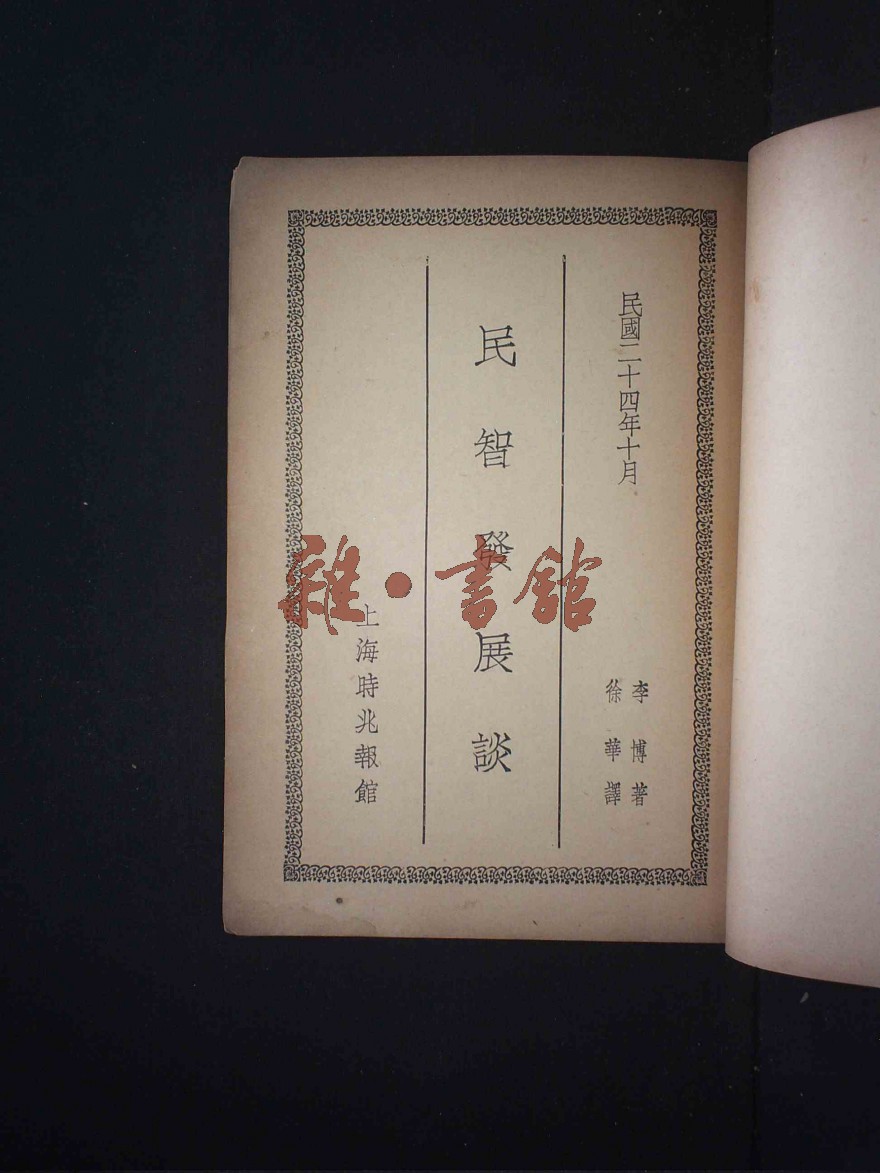 民國二十四年十月
李博著
徐華譯
民智發展談
上海時兆報館
雜·書館